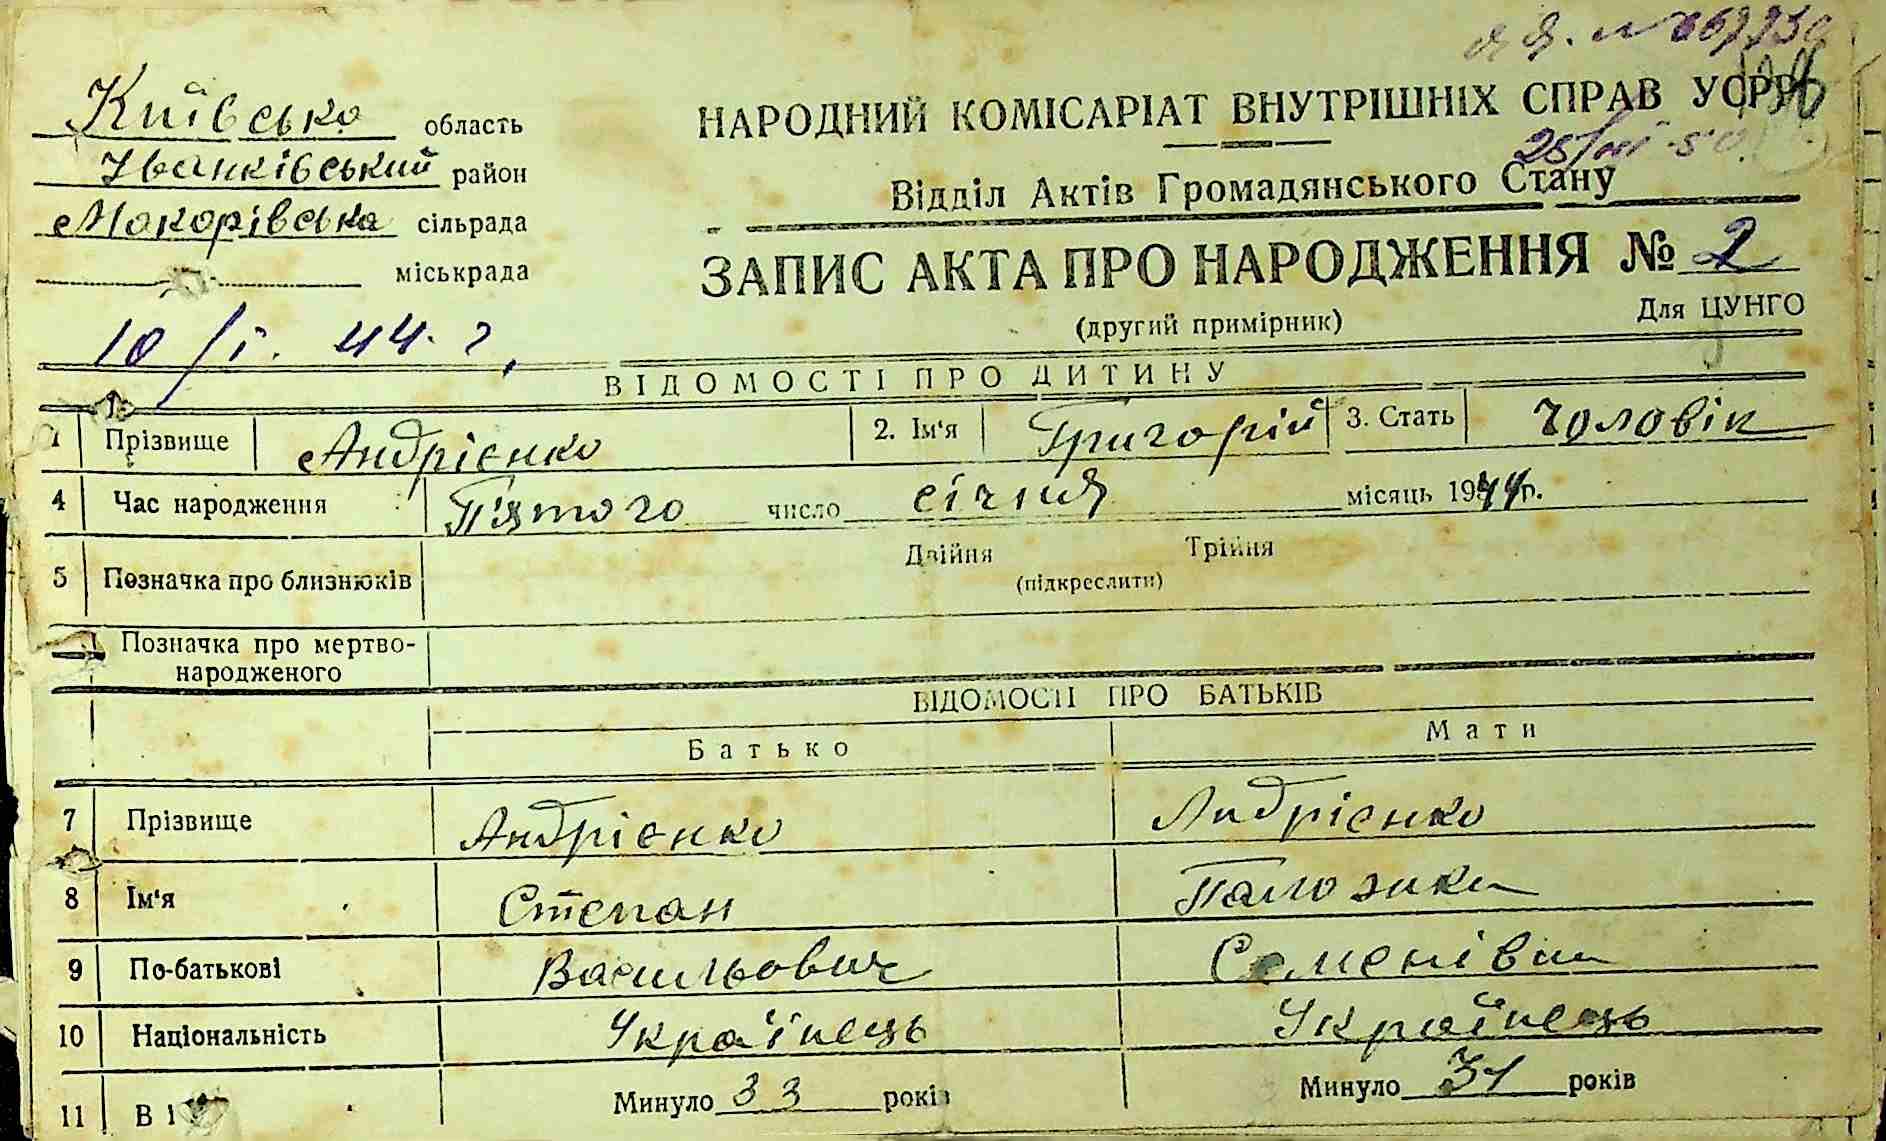 Київсько область
Іванківський район
Мокорівська сільрада
міськрада
10/І. 44. г,
НАРОДНИЙ КОМІСАРІАТ ВНУТРІШНІХ СПРАВ УСРР
Відділ Актів Громадянського Стану
ЗАПИС АКТА ПРО НАРОДЖЕННЯ № 2
(другий примірник) Для ЦУНГО
ВІДОМОСТІ ПРО ДИТИНУ
1 Прізвище Андрієнко 2. Ім'я Григорій 3. Стать Чоловік
4 Час народження П'ятого число січня місяць 1944 р.
5 Позначка про близнюків Двійня Трійня
(підкреслити)
Позначка про мертво-
народженого
ВІДОМОСТІ ПРО БАТЬКІВ
Батько Мати
7 Прізвище Андрієнко Андрієнко
8 Ім'я Степан
9 По-батькові Васильович Семенівна
10 Національність Українець Українець
11 Ві Минуло 33 років Минуло 31 років